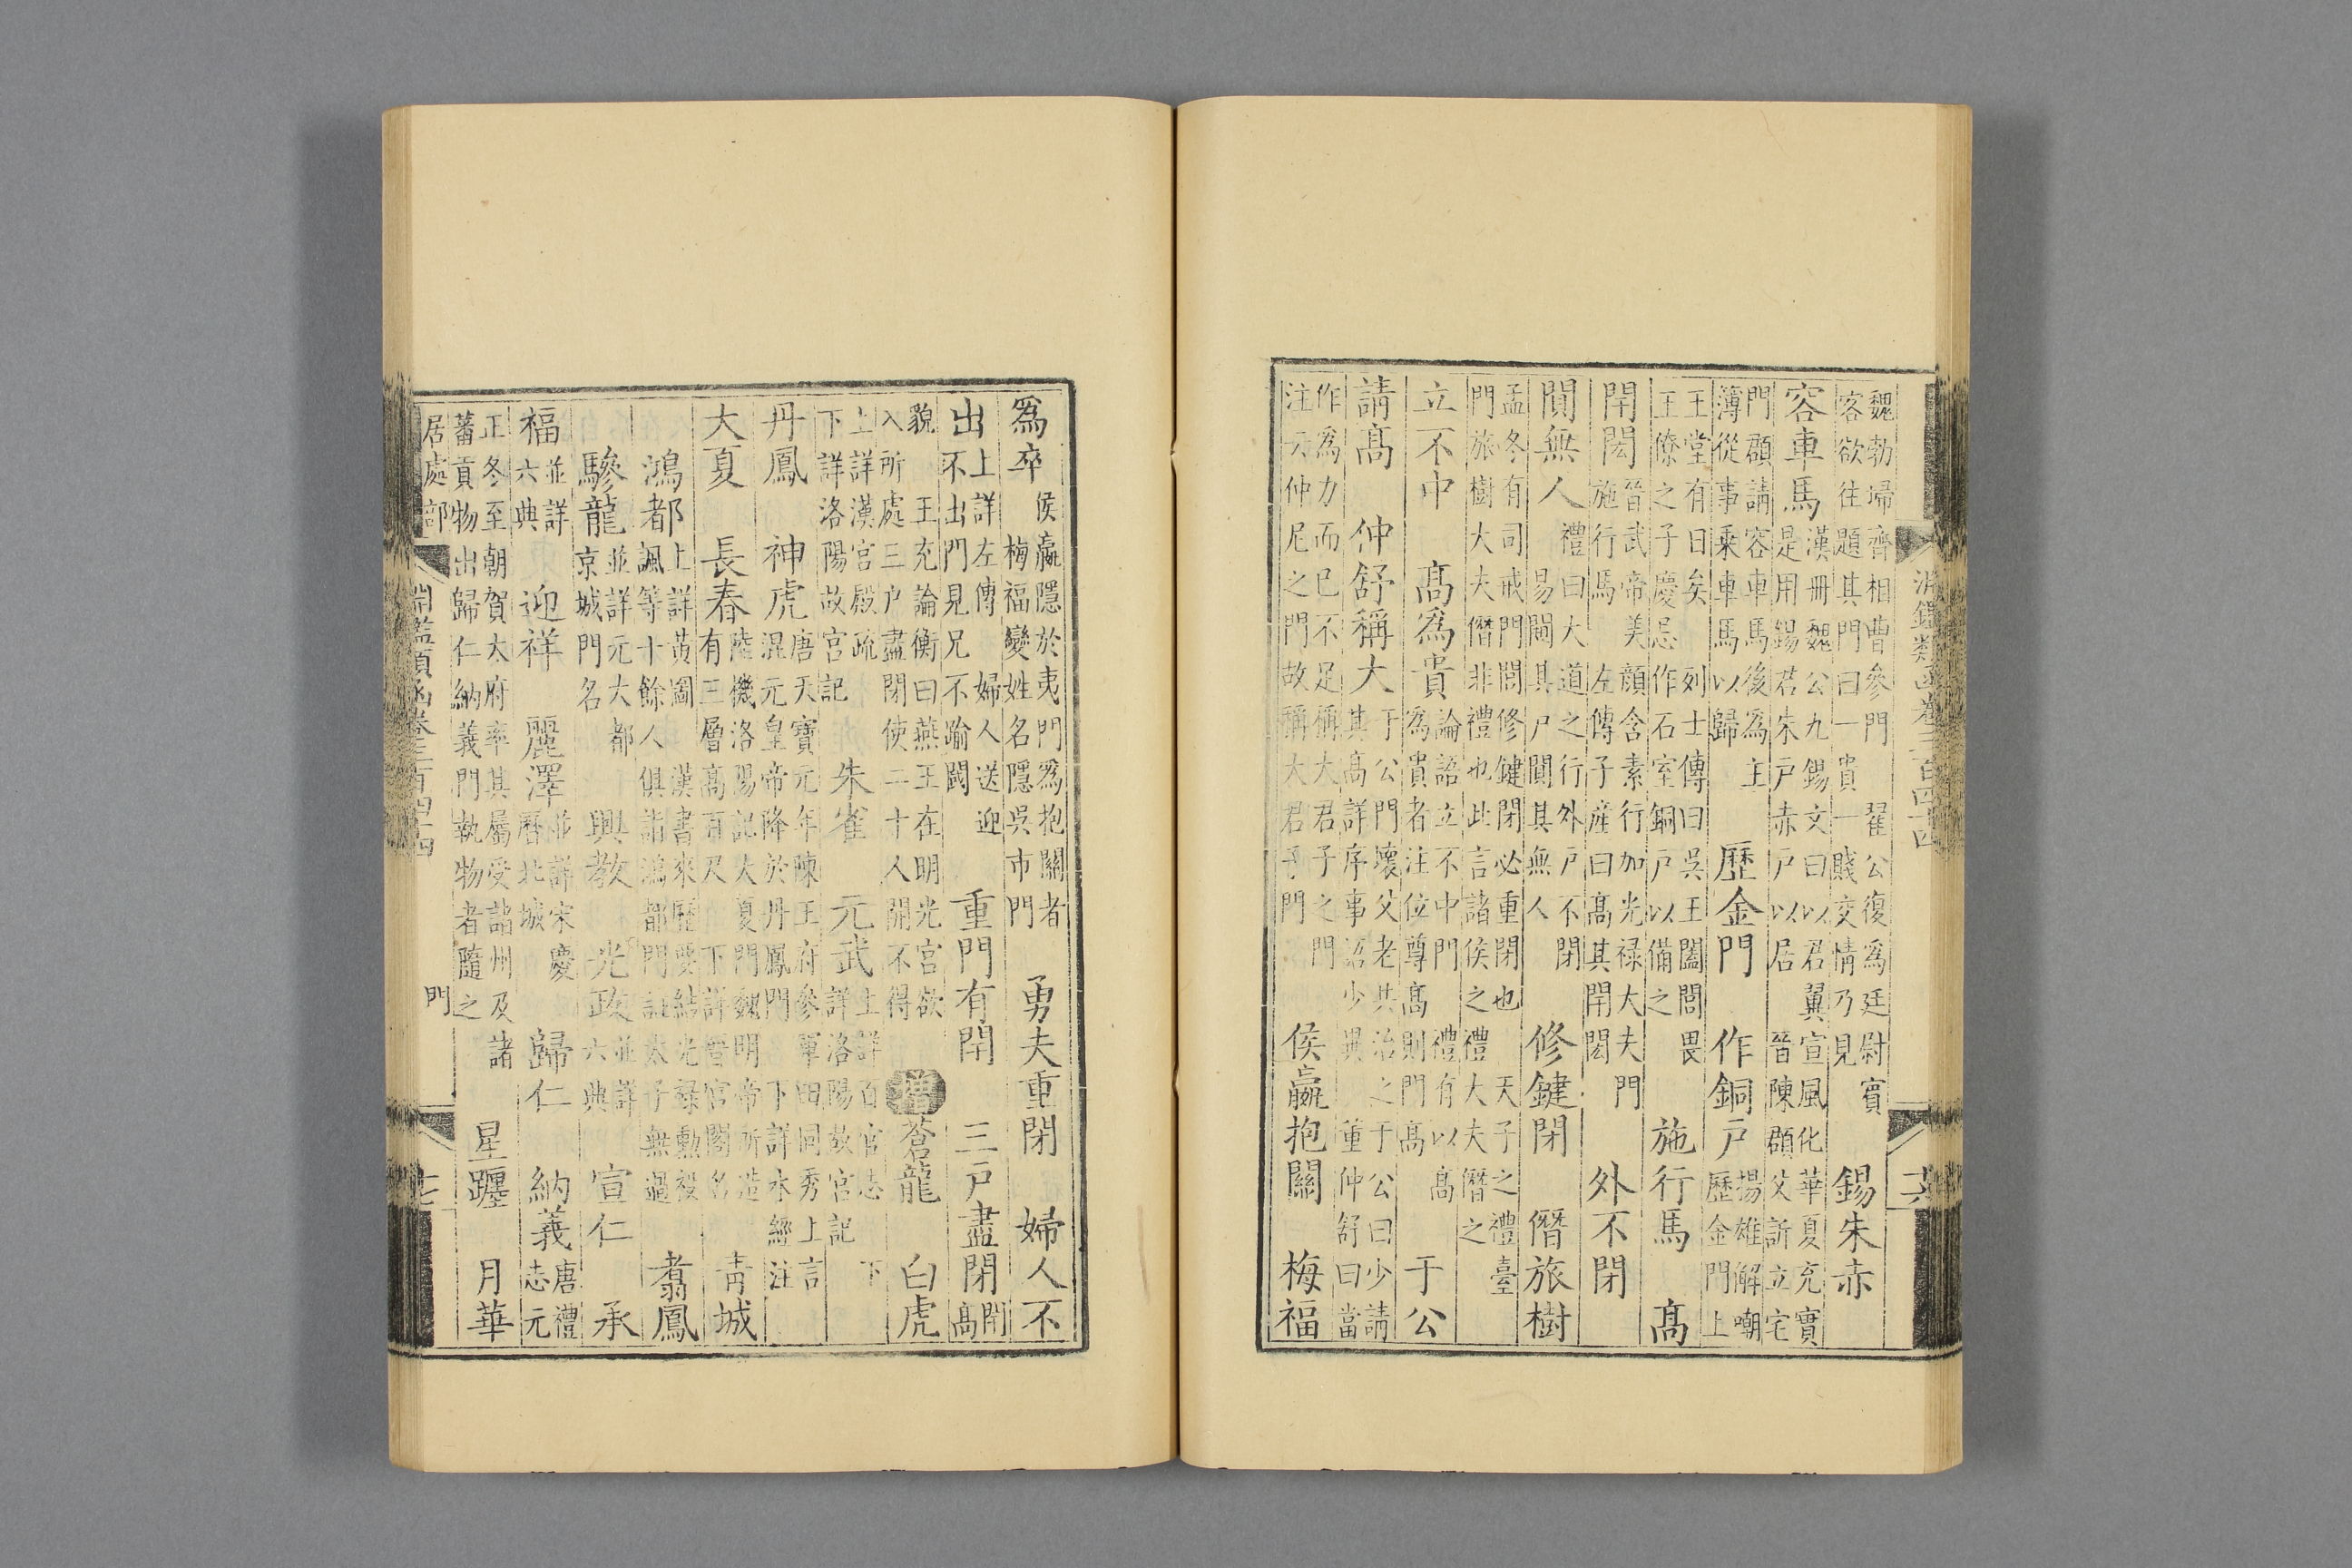 淵鑑類函卷三百四十四 十六
魏勃埽齊相曹參門 翟公復爲廷尉賓客欲往題其門曰一貴一賤交情乃見 錫朱赤
容車馬 漢册魏公九錫文曰以君翼宣風化華夏充實是用錫君朱户赤户以居 晉陳頵父訢立宅
門頵請容車馬後爲主簿從事乗車馬以歸 歷金門 作銅户 揚雄解嘲歷金門上
王堂有日矣 列士傳曰吳王闔閭畏王僚之子慶忌作石室銅户以備之 施行馬 高
閈閎 晉武帝美顔含素行加光禄大夫門施行馬 左傳子産曰高其閈閎 外不閉
閴無人 禮曰大道之行外户不閉 易闚其户閴其無人 修鍵閉 僭旅樹
孟冬有司戒門閭修鍵閉必重閉也 天子之禮臺門旅樹大夫僭非禮也此言諸侯之禮大夫僭之
立不中 高爲貴 論語立不中門 禮有以高爲貴者注位尊高則門高 于公
請高 仲舒稱大 于公門壞父老共治之于公曰少請其高詳序事詔少異 董仲舒曰當
作爲力而已不足稱大君子之門注云仲尼之門故稱大君子門 侯嬴抱關 梅福
爲卒 侯嬴隱於夷門爲抱關者 梅福變姓名隱吳市門 勇夫重閉 婦人不
出 上詳左傳 婦人送迎不出門見兄不踰閾 重門有閈 三户盡閉 閈高
貌 王充論衡曰燕王在明光宫欲入所處三户盡閉使二十人開不得 增 蒼龍 白虎
上詳漢宫殿疏下詳洛陽故宫記 朱雀 元武 上詳百官志 下詳洛陽故宫記
丹鳳 神虎 唐天寶元年陳王府參軍田同秀上言混元皇帝降於丹鳳門 下詳水經注
大夏 長春 陸機洛陽記大夏門魏明帝所造有三層高百尺 下詳晉宫閣名 青城
鴻都 上詳黄圖 漢書來歷要結光禄勲祋諷等十餘人俱詣鴻都門証太子無過 翥鳳
驂龍 並詳元大都京城門名 興教 光政 並詳六典 宣仁 承
福 並詳六典 迎祥 麗澤 並詳宋慶曆北城 歸仁 納義 唐禮志元
正冬至朝賀太府率其屬受詔州及諸蕃貢物出歸仁納義門執物者隨之 星躔 月華
居處部 淵鑑類函卷三百四十四 門 十七